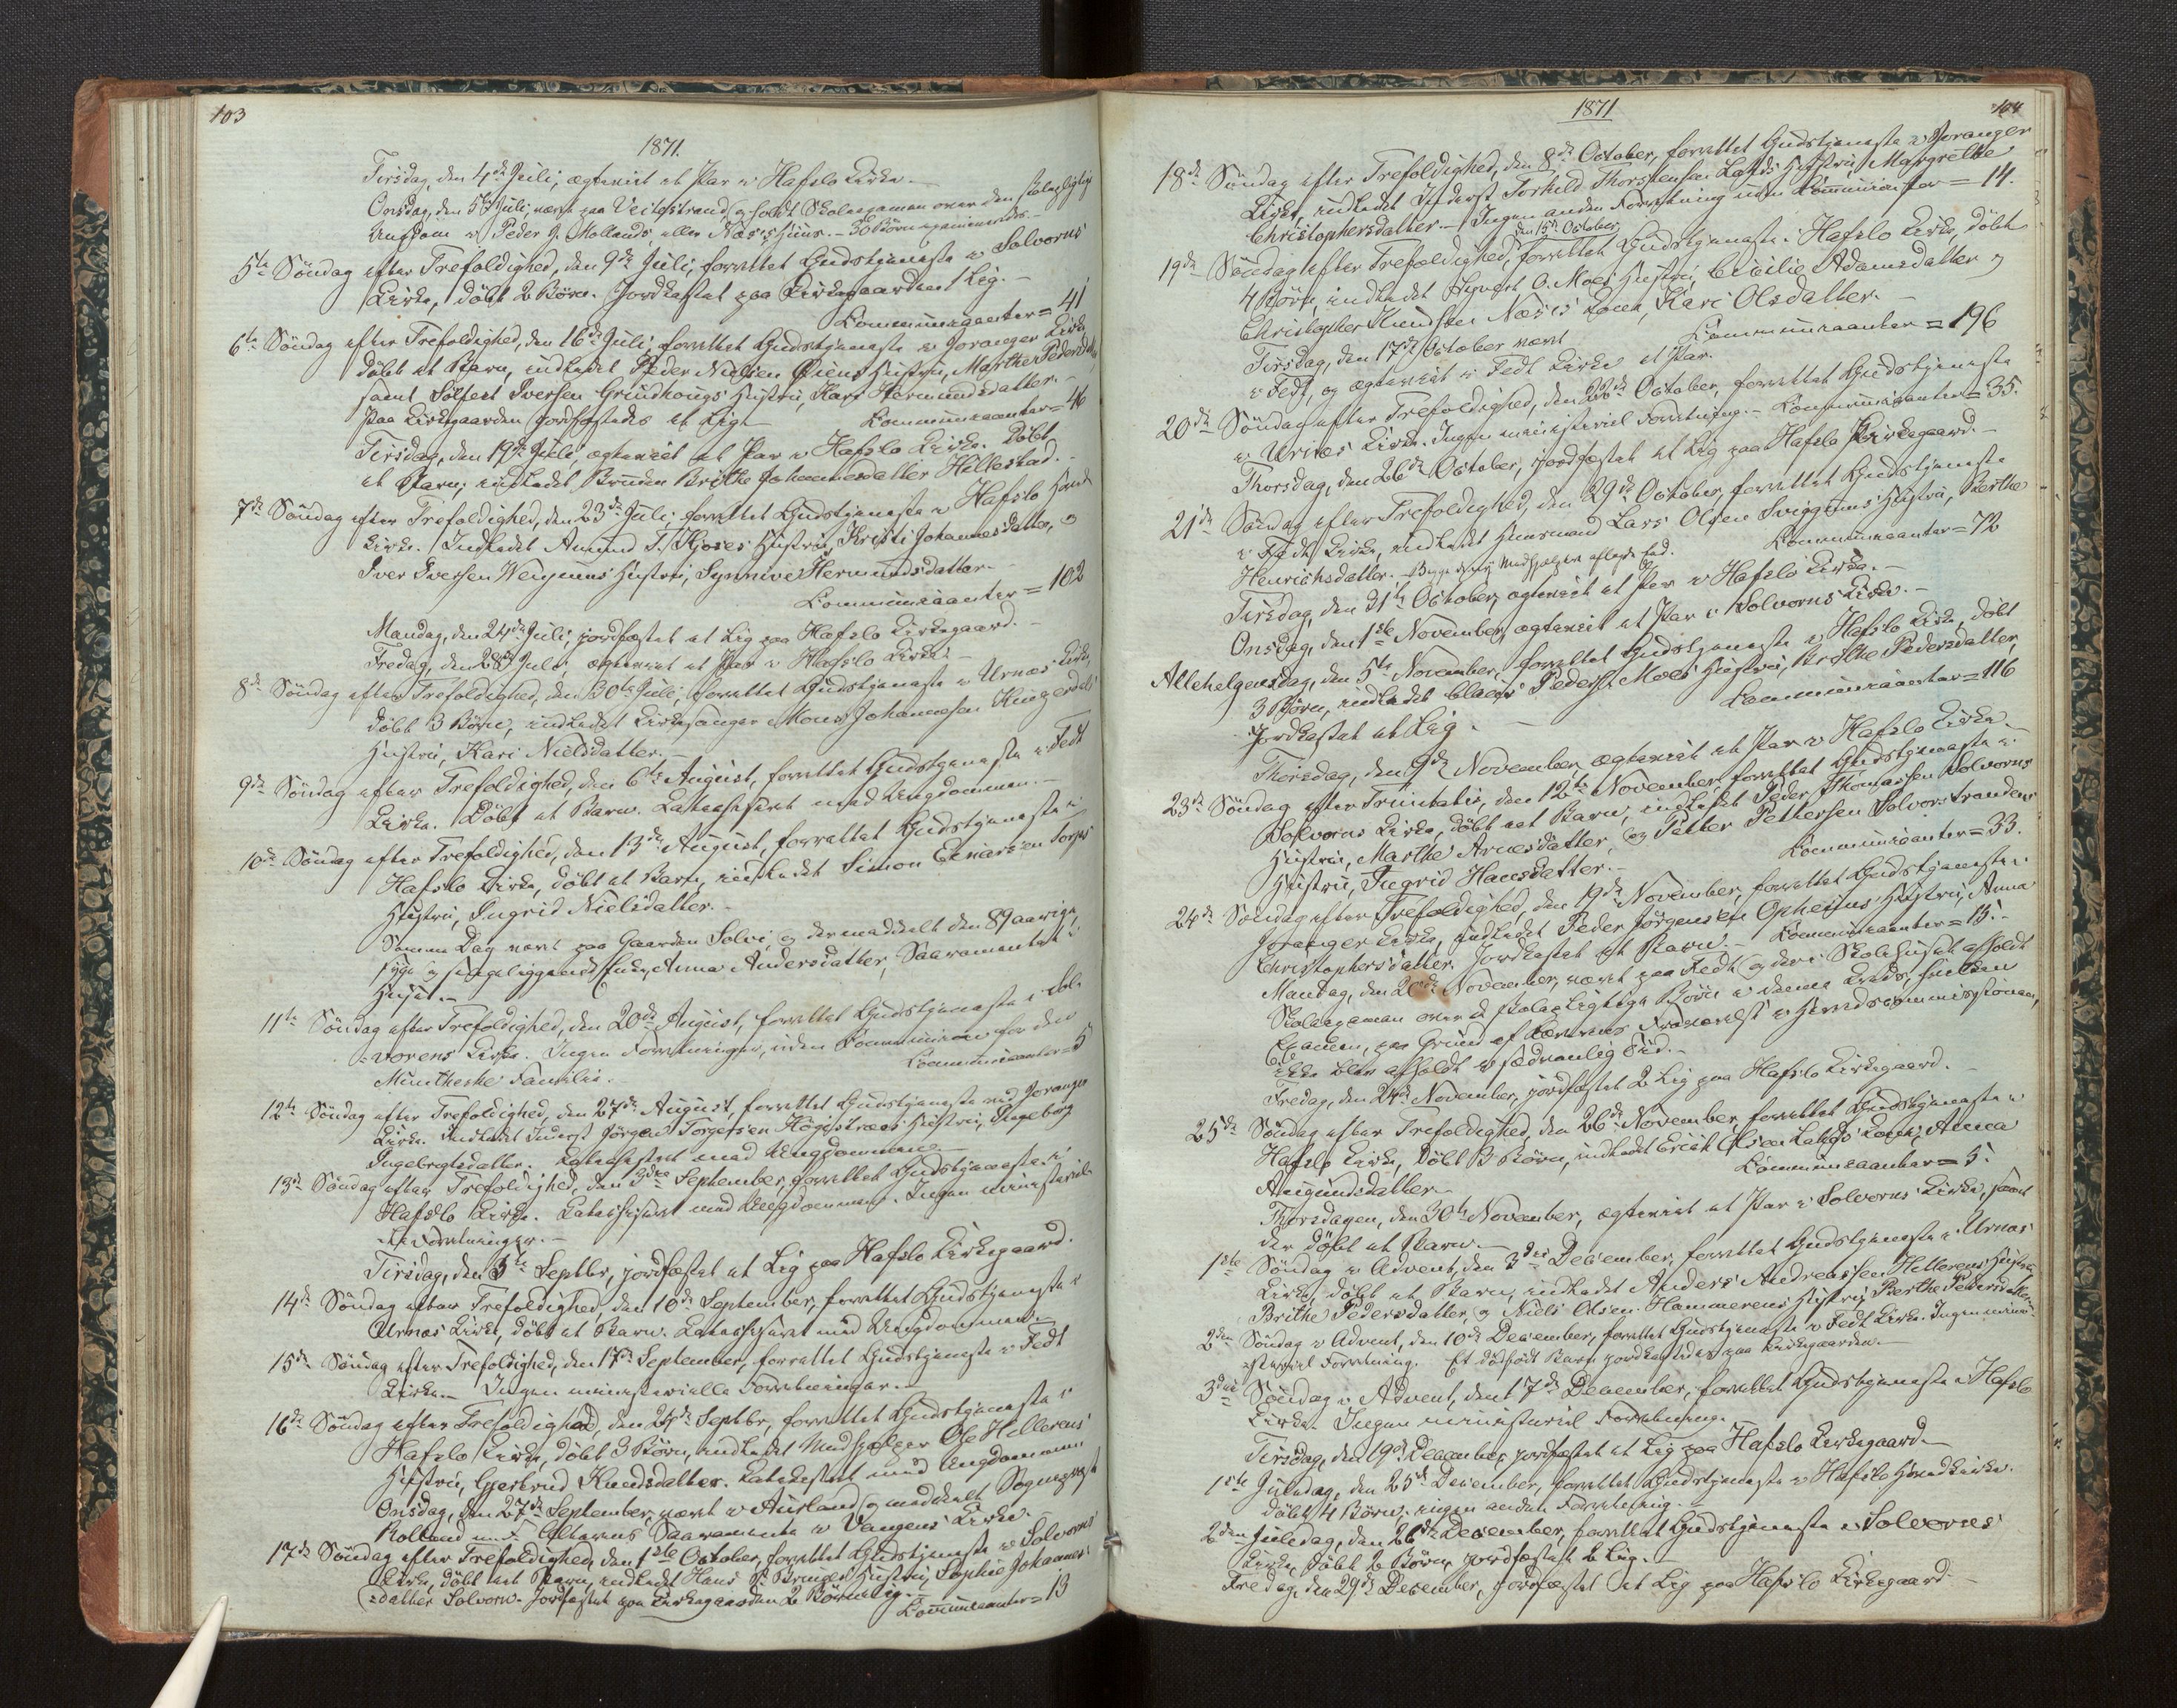 103
1871.
Tirsdag, den 4de Juli, ægteviet et Par i Hafslo Kirke.
Onsdag, den 5te Juli, været paa Veitestrand og holdt Skoleexamen over den skolepligtige
Ungdom i Peder J. Mollands, eller Næsis Huus. 30 Børn examineredes.
5te Søndag efter Trefoldighed, den 9de Juli, forrettet Gudstjeneste i Solvorns
Kirke, døbt 2 Børn. Jordkastet paa Kirkegaarden 1 Lig.
Communicanter = 41
6te Søndag efter Trefoldighed, den 16de Juli, forrettet Gudstjeneste i Joranger Kirke,
døbt et Barn, indledet Peder Nielsen Hustru, Marthe Pedersdatter,
samt Solfest Iversen Grindhougs Hustru, Kari Hermundsdatter.
Paa Kirkegaarden jordfæstedes et Lig. Communicanter = 46
Tirsdag, den Juli, ægteviet et Par i Hafslo Kirke. Døbt
et Barn, indledet Bruden Brithe Johannesdatter Hillestad.
7de Søndag efter Trefoldighed, den 23de Juli, forrettet Gudstjeneste i Hafslo Hoved
Kirke. Indledet Amund T. Kjoses Hustru, Kristi Johannesdatter, og
Iver Iversen Hustru, Synnive Hermundsdatter.
Communicanter = 102
Mandag, den 24de Juli, jordfæstet et Lig paa Hafslo Kirkegaard.
Fredag, den 28de Juli, ægteviet et Par i Hafslo Kirke.
8de Søndag efter Trefoldighed, den 30te Juli, forrettet Gudstjeneste i Urnæs Kirke,
døbt 3 Børn, indledet Kirkesanger Mons Johannesen
Hustru, Kari Nielsdatter.
9de Søndag efter Trefoldighed, den 6te August, forrettet Gudstjeneste i Fedt
Kirke. Døbt et Barn. Katechiseret med Ungdommen.
10de Søndag efter Trefoldighed, den 13de August, forrettet Gudstjeneste i
Hafslo Kirke, døbt et Barn, indledet Simon Einarsen Torps
Hustru, Ingrid Nielsdatter.
Samme Dag været paa Gaarden Solvi, og der meddeelt den 89aarige,
syge og sengeliggende Enke, Anna Andersdatter, Sacramentet i
Huset.
11te Søndag efter Trefoldighed, den 20de August, forrettet Gudstjeneste i Sol-
vorens Kirke. Ingen Forretninger, uden Communion for den
Muntheske Familie. Communicanter = 5
12te Søndag efter Trefoldighed, den 27de August, forrettet Gudstjeneste ved Joranger
Kirke. Indledet Inderst Jørgen Torgersen Hustru, Ingeborg
Ingebregtsdatter. Katechiseret med Ungdommen.
13de Søndag efter Trefoldighed, den 3die September, forrettet Gudstjeneste i
Hafslo Kirke. Katechiseret med Ungdommen. Ingen ministeriel-
le Forretninger.
Tirsdag, den 5te Septbr, jordfæstet et Lig paa Hafslo Kirkegaard.
14de Søndag efter Trefoldighed, den 10de September, forrettet Gudstjeneste i
Urnæs Kirke, døbt et Barn. Katechiseret med Ungdommen.
15de Søndag efter Trefoldighed, den 17de September, forrettet Gudstjeneste i Fedt
Kirke. Ingen ministerielle Forretninger.
16de Søndag efter Trefoldighed, den 24de Septbr, forrettet Gudstjeneste i
Hafslo Kirke, døbt 3 Børn, indledet Medhjælper Ole Hillerens
Hustru, Gjertrud Knudsdatter. Katechiseret med Ungdommen.
Onsdag, den 27de September, været i Aurland og meddeelt Sognepræst
Rolland m. F. Altarens Sacramente i Vangens Kirke.
17de Søndag efter Trefoldighed, den 1ste October, forrettet Gudstjeneste i Solvorns
Kirke, døbt et Barn, indledet Hans Hustru, Sophie Johannes-
datter Solvorn. Jordfæstet paa Kirkegaarden 2 Børnelig.
Communicanter = 13
1871
104
18de Søndag efter Trefoldighed, den 8de October, forrettet Gudstjeneste i Joranger
Kirke, indledet Inderst Torkild Thorstensen Hustru, Margrethe
Christophersdatter. Ingen anden Forretning uden Communion for = 14.
den 15de October,
19de Søndag efter Trefoldighed, forrettet Gudstjeneste i Hafslo Kirke, døbt
4 Børn, indledet Sjugurd O. Moes Hustru, Cicilie Adamsdatter og
Christopher Knudsen Næsis Kone, Kari Olsdatter.
Communicanter = 196
Tirsdag, den 17de October været
i Fedt, og ægteviet i Fedt Kirke et Par.
20de Søndag efter Trefoldighed, den 22de October, forrettet Gudstjeneste
i Urnæs Kirke. Ingen ministeriel Forretning. Communicanter = 35.
Thorsdag, den 26de October, jordfæstet et Lig paa Hafslo Kirkegaard.
21de Søndag efter Trefoldighed, den 29de October, forrettet Gudstjeneste
i Fedt Kirke, indledet Huusmand Lars Olsen Sviggums Hustru, Berthe
Henrichsdatter. Medhjælpere aflagde Eed. Communicanter = 72
Tirsdag, den 31te October, ægteviet et Par i Hafslo Kirke.
Onsdag, den 1ste November, ægteviet et Par i Solvorns Kirke.
Allehelgensdag, den 5te November, forrettet Gudstjeneste i Hafslo Kirke, døbt
3 Børn, indledet Claus Peders. Moes Hustru, Brithe Pedersdatter,
Jordkastet et Lig. Communicanter = 116
Thorsdag, den 9de November, ægteviet et Par i Hafslo Kirke.
23de Søndag efter Trinitatis, den 12te November, forrettet Gudstjeneste i
Solvorns Kirke, døbt et Barn, indledet Peder Thomassen Solvorns
Hustru, Marthe Arnesdatter, og Petter Pettersen Solvorstrandens
Hustru, Ingrid Hansdatter. Communicanter = 33.
24de Søndag efter Trefoldighed, den 19de November, forrettet Gudstjeneste i
Joranger Kirke, indledet Peder Jørgensen Opheims Hustru, Anna
Christophersdatter. Jordkastet et Barn. Communicanter = 15.
Mandag, den 20de November, været paa Fedt og der i Skolehuset afholdt
Skoleexamen over de skolepligtige Børn i denne Kreds, hvilken
Examen, paa Grund af Lærerens Fraværelse i Herredscommissionen,
ikke blev afholdt i sædvanlig Tid.
Fredag, den 24de November, jordfæstet 2 Lig paa Hafslo Kirkegaard.
25de Søndag efter Trefoldighed, den 26de November, forrettet Gudstjeneste i
Hafslo Kirke, døbt 3 Børn, indledet Erick Olsen Kone, Anna
Amundsdatter. Communicanter = 5.
Thorsdagen, den 30te November, ægteviet et Par i Solvorns Kirke, samt
der døbt et Barn.
1ste Søndag i Advent, den 3die December, forrettet Gudstjeneste i Urnæs
Kirke, døbt et Barn, indledet Anders Andreassen Hillerens Hustru,
Brithe Pedersdatter, og Niels Olsen Hammerens Hustru, Berthe Pedersdatter.
2den Søndag i Advent, den 10de December, forrettet Gudstjeneste i Fedt Kirke. Ingen mini-
steriel Forretning. Et dødfødt Barn jordkastedes paa Kirkegaarden.
3die Søndag i Advent, den 17de December, forrettet Gudstjeneste i Hafslo
Kirke. Ingen ministeriel Forretning.
Tirsdag, den 19de December, jordfæstet et Lig paa Hafslo Kirkegaard.
1ste Juledag, den 25de December, forrettet Gudstjeneste i Hafslo Hovedkirke.
døbt 4 Børn, ingen anden Forretning.
2den Juledag, den 26de December, forrettet Gudstjeneste i Solvorns
Kirke, døbt 2 Børn, jordfæstet 2 Lig.
Fredag, den 29de December, jordfæstet et Lig paa Hafslo Kirkegaard.